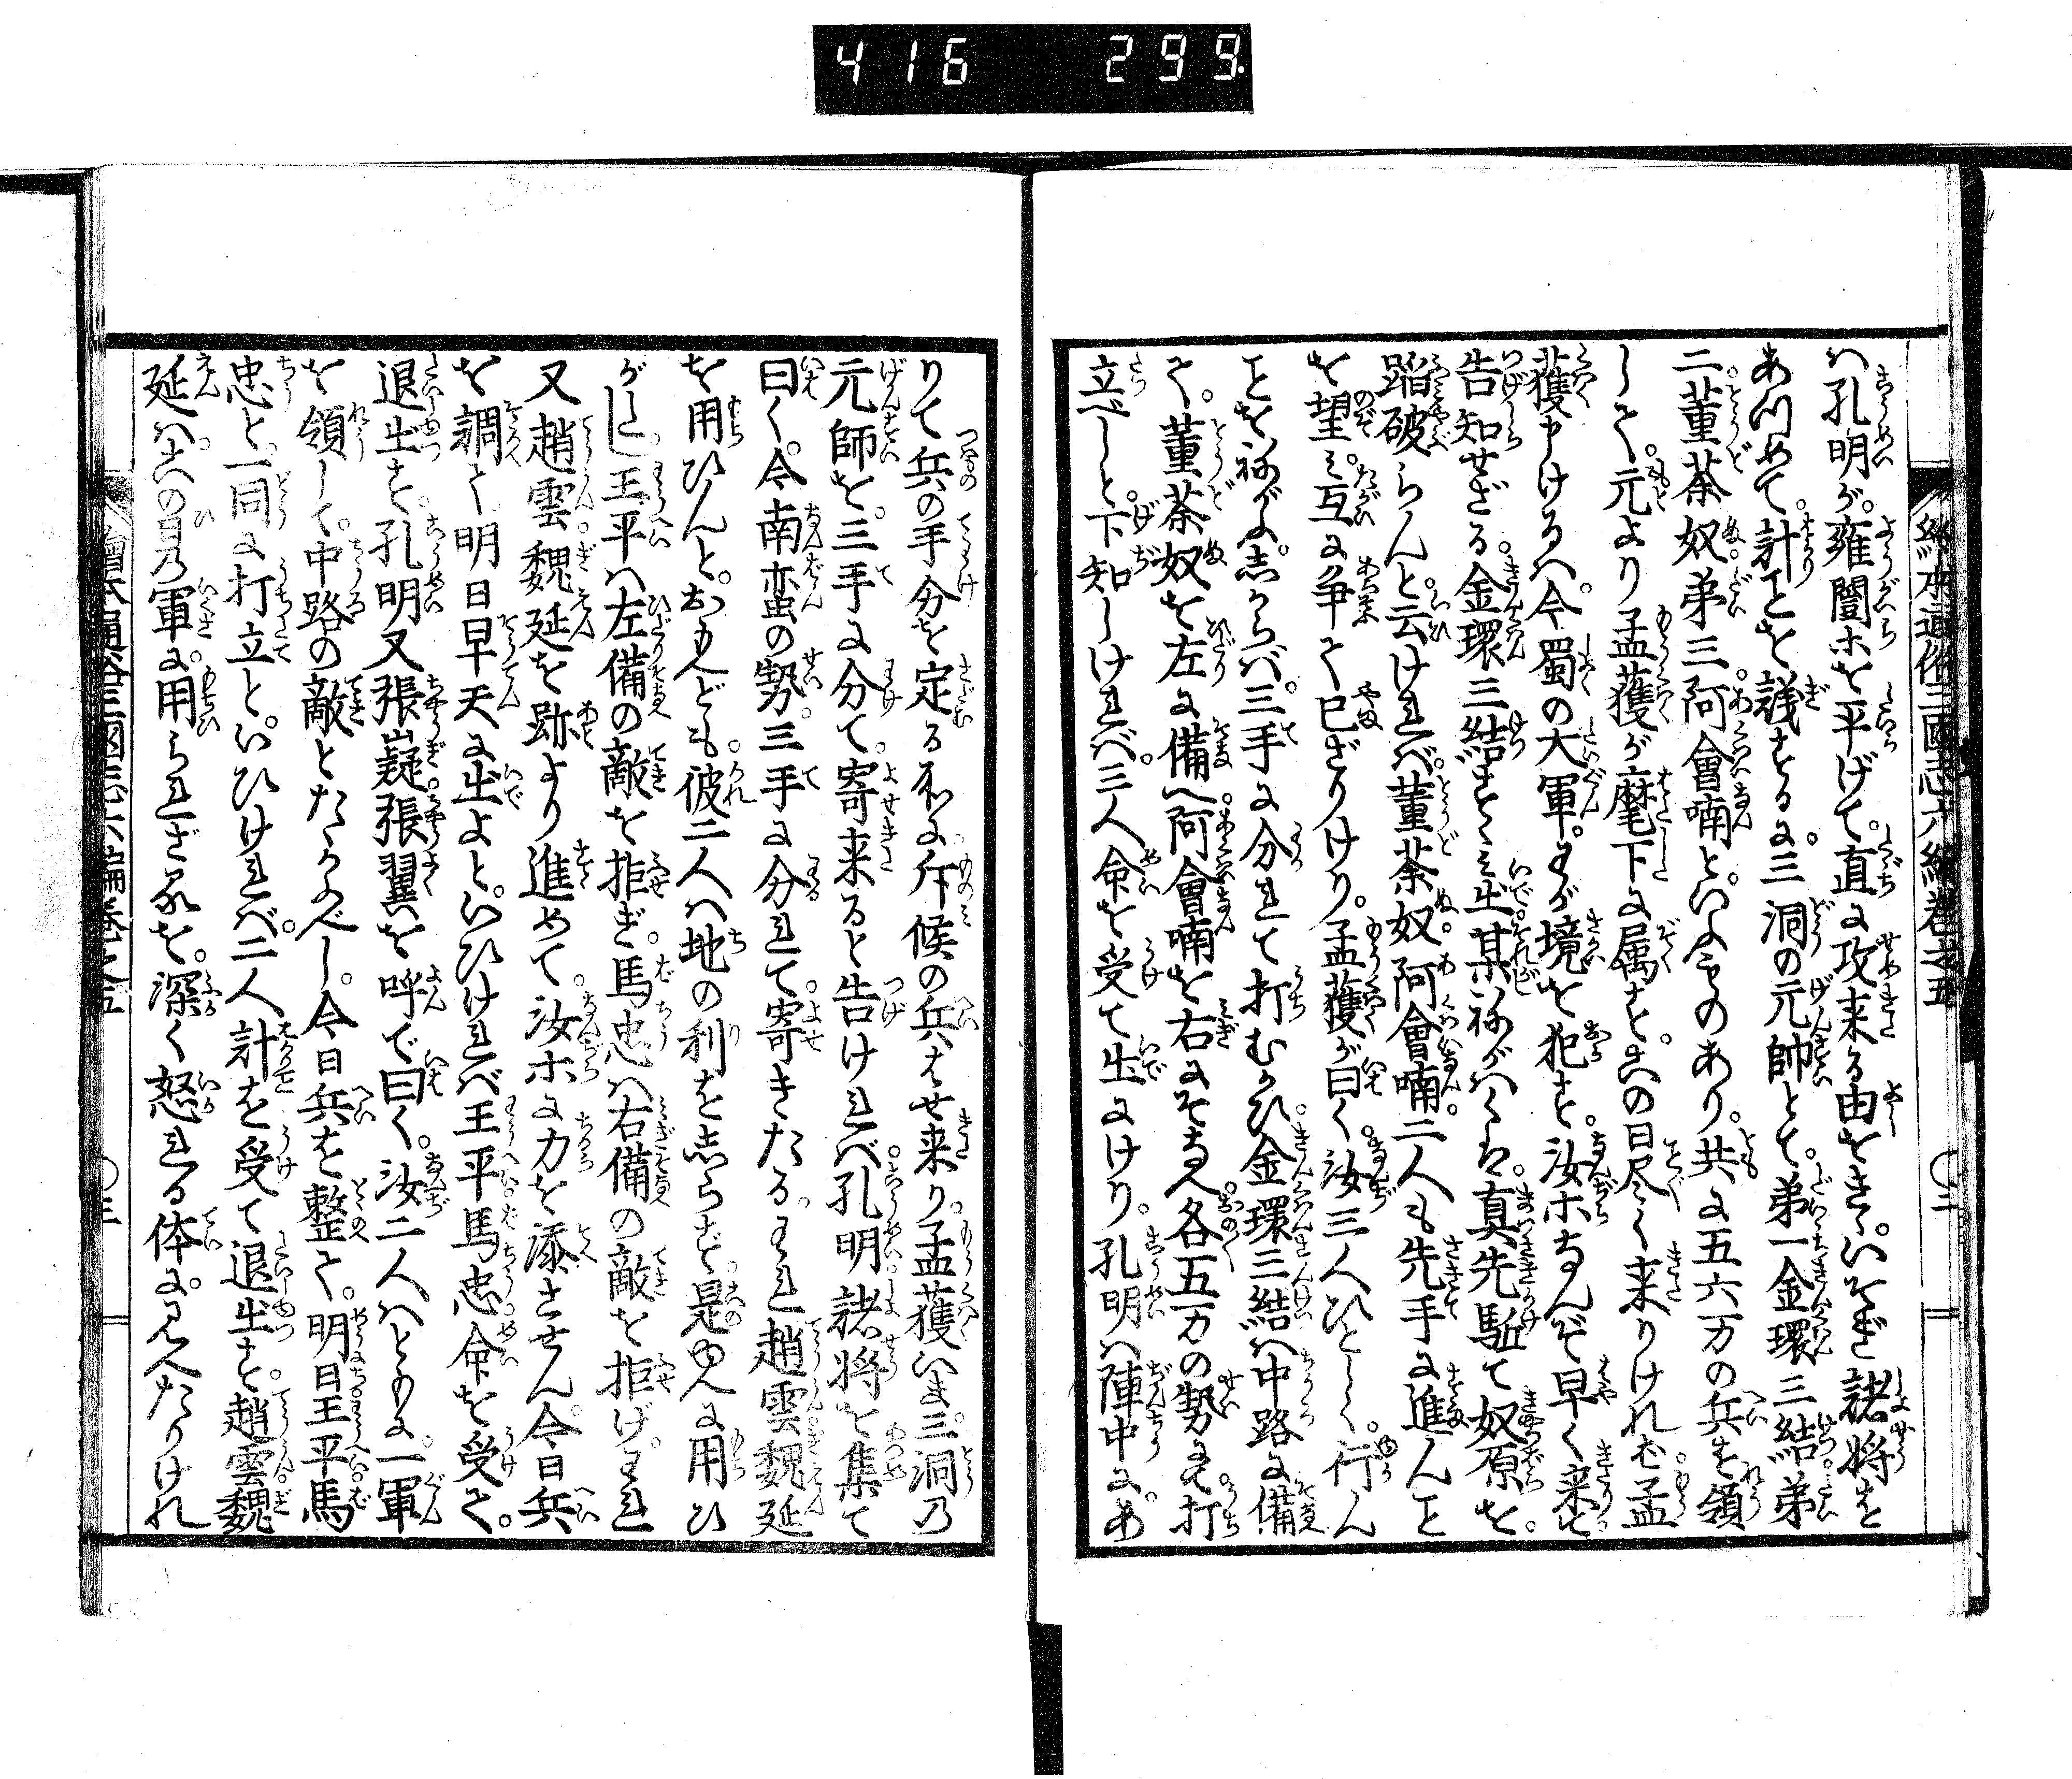 416 299.
繪本通俗三國志六編巻之五 〇二
ハ孔明が。雍闓ホを平げて。直に攻来る由をきゝ。いそぎ諸将を
あつめて。計ことを議するに。三洞の元帥とて。弟一金環三結弟
二董荼奴。弟三阿會喃といふものあり。共に五六万の兵を領
して。元より孟獲が麾下に属す。この日尽く来りけれバ孟
獲申けるハ。今蜀の大軍。わが境を犯す。汝ホなんぞ早く来て
告知せざる。金環三結すゝみ出某ねがハくハ。真先駈て奴原を。
蹈破らんと。云けれバ。董荼奴。阿會喃。二人も先手に進んこと
を望み。互に争て已ざりけり。孟獲が曰く。汝三人ひとしく。行ん
ことをねがふ。志からバ。三手に分れて打むかひ。金環三結ハ中路に備
て。董荼奴を左に備へ。阿會喃を右にそなへ各五万の勢にて打
立べしと。下知しけれバ。三人命を受て出にけり。孔明ハ陣中にあ
りて兵の手分を定る所に。斥候の兵はせ来り。孟獲いま三洞乃
元師を。三手に分て。寄来ると告けれバ。孔明諸将を集て
曰く。今南蛮の勢。三手に分れて。寄きたる。われ趙雲魏延
を用ひんと。おもへども。彼二人ハ地の利を志らず。是ゆへに用ひ
がたし。王平ハ左備の敵を拒ぎ。馬忠ハ右備の敵を拒げ。われ
又趙雲。魏延を跡より進めて。汝ホに力を添させん。今日兵
を調て。明日早天に出よと。いひけれバ王平馬忠命を受て。
退出す。孔明又張嶷。張翼を呼で曰く。汝二人ハともに。一軍
を領して。中路の敵とたゝかふべし。今日兵を整て。明日王平馬
忠と。一同に打立と。いひけれバ。二人計を受て退出す。趙雲魏
延ハこの日乃軍に。用られざるを。深く怒れる体に。見へたりけれ
繪本通俗三國志六編巻之五 〇三